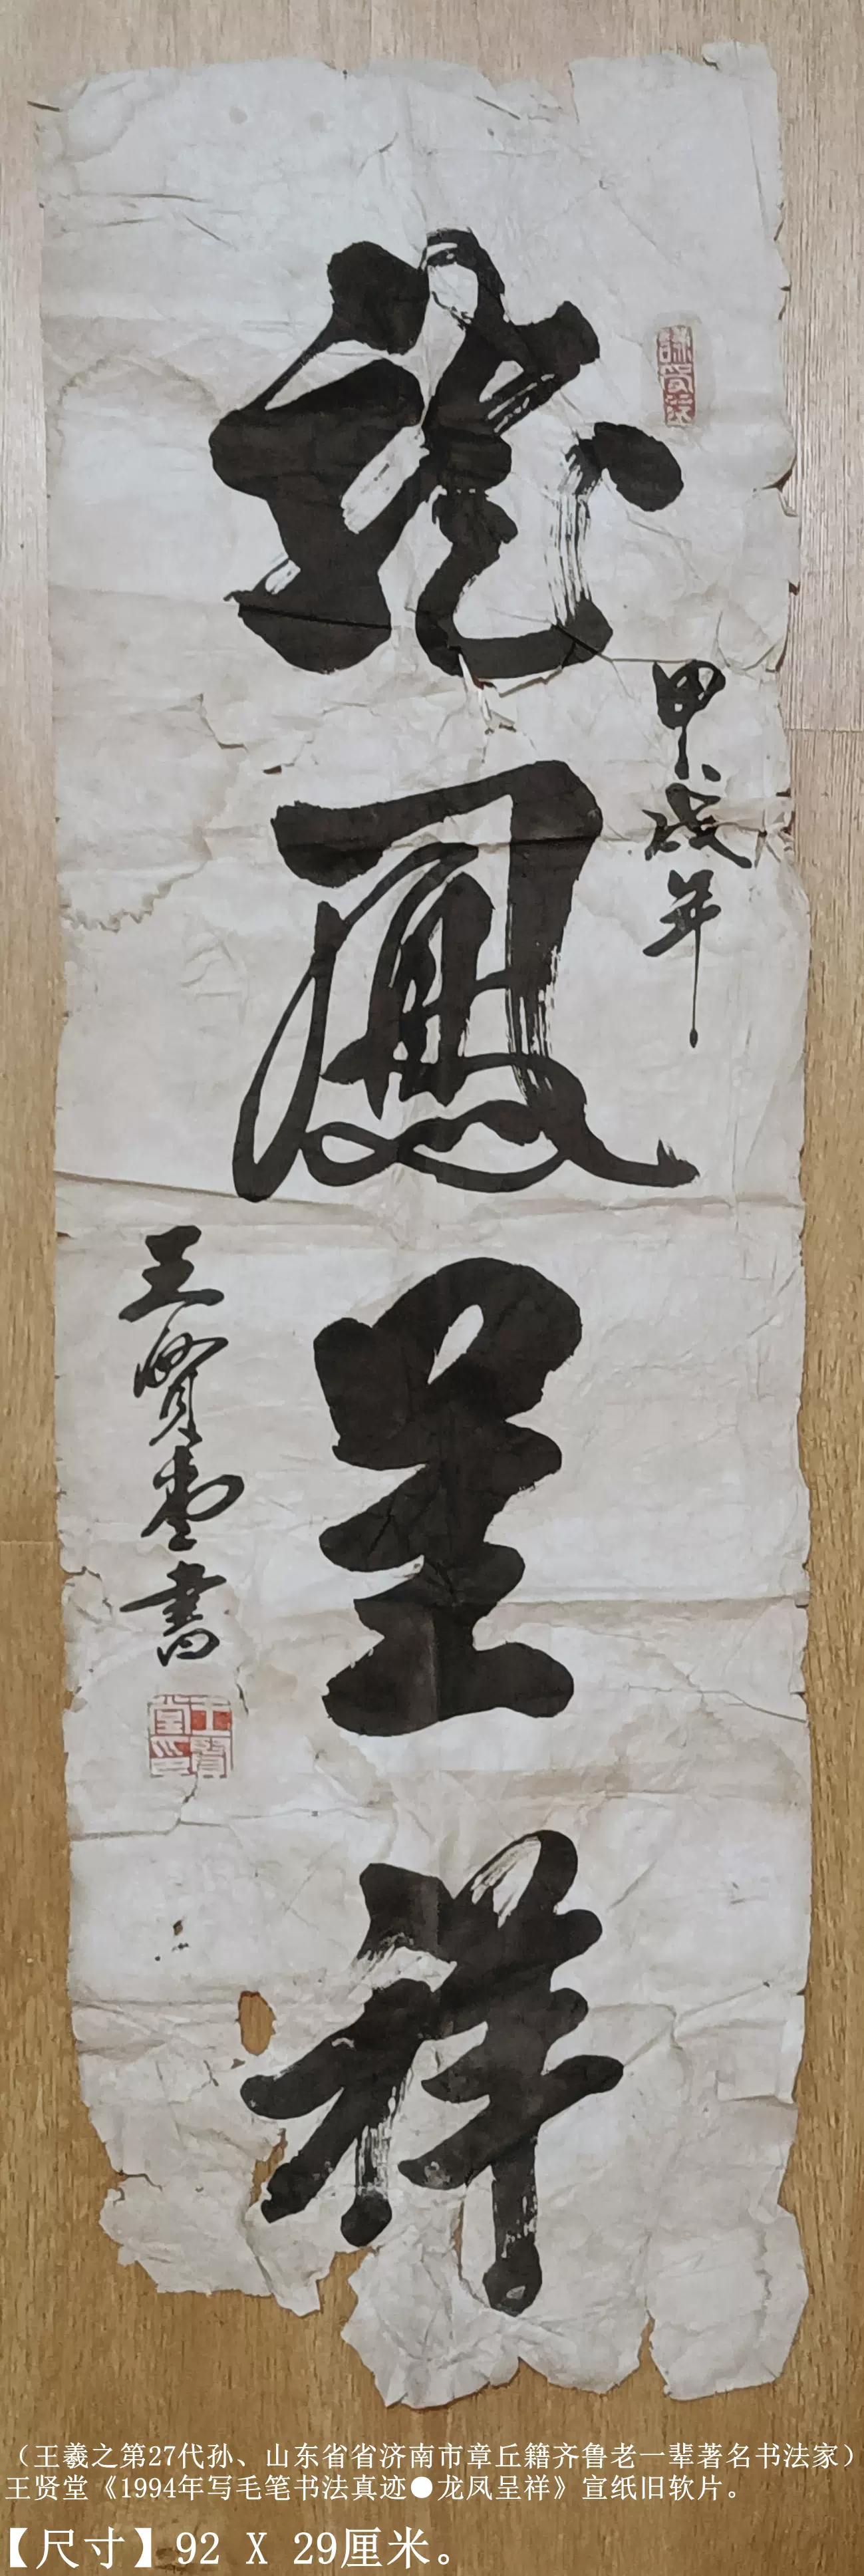 龍鳳呈祥
甲戌年
王賢堂書
王賢堂印
（王羲之第27代孙、山东省省济南市章丘籍齐鲁老一辈著名书法家）
王贤堂《1994年写毛笔书法真迹●龙凤呈祥》宣纸旧软片。
【尺寸】92 X 29厘米。